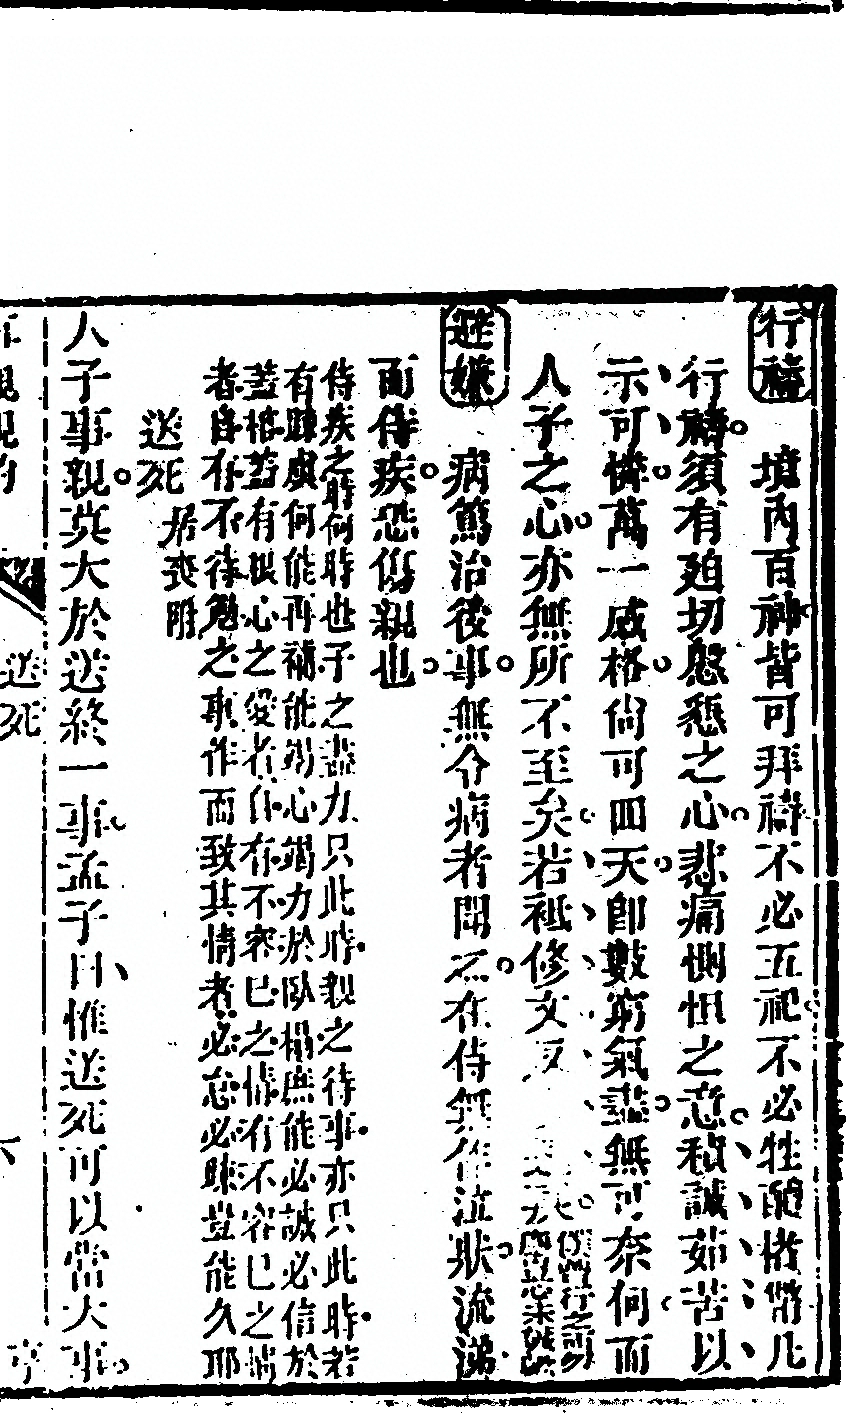 行禱 境內百神皆可拜禱不必五祀不必牲醴楮幣凡
行禱須有廹切慇懇之心悲痛惻怛之意積誠茹苦以
示可憐萬一感格尙可回天卽數窮氣盡無可奈何而
人子之心亦無所不至矣若祗修文
行之
避嫌 病篤治後事無令病者聞之在侍無作泣狀流涕
而侍疾恐傷親也
侍疾之時何時也子之盡力只此時親之待事亦只此時若
有踈虞何能再補能竭心竭力於臥榻庶能必誠必信於
蓋棺蓋有根心之愛者自有不容已之情有不容已之情
者自有不待勉之事作而致其情者必怠必踈豈能久耶
送死 居喪附
人子事親莫大於送終一事孟子曰惟送死可以當大事
送死